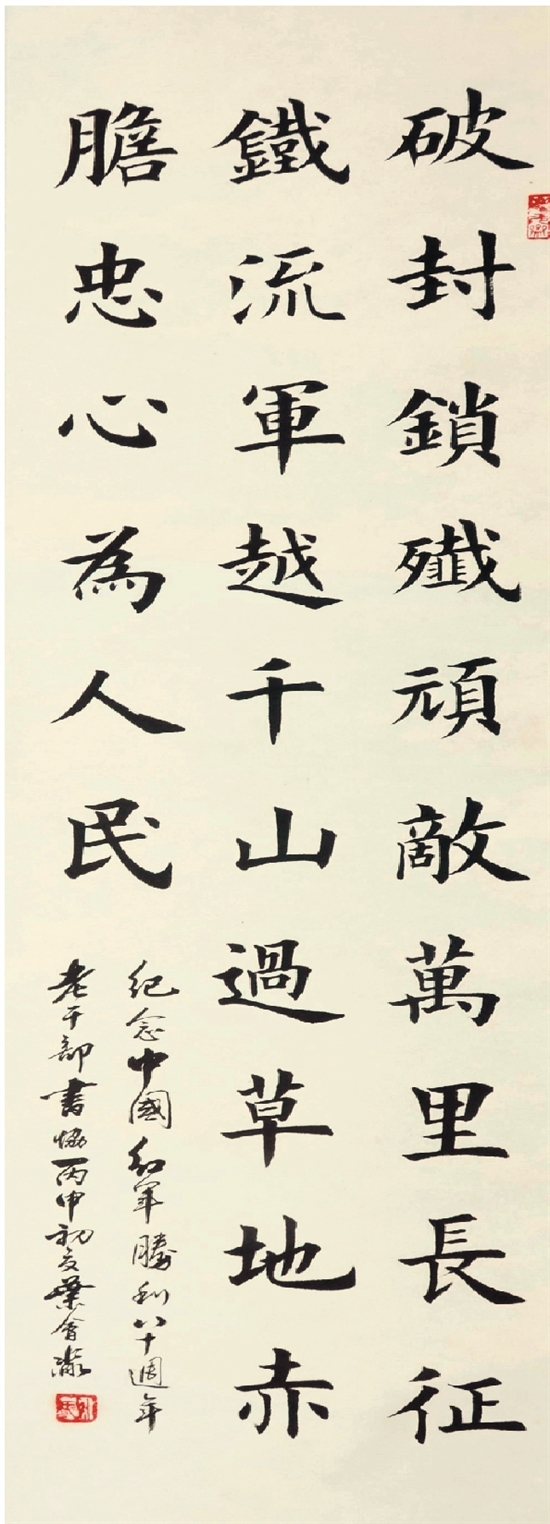 破封鎖殲頑敵萬里長征
鐵流軍越千山過草地赤
膽忠心為人民
紀念中國紅軍勝利八十週年
老干部書協丙申初夏葉會